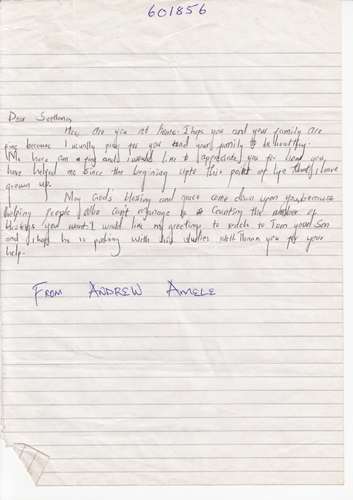 601856
Dear Svetlana
How are you at home. I hope you and your family are
fine because I usually pray for you and your family to be healthy.
Me here am fine and i would like to appreciate you for how you
have helped me since the begining upto this point of life that I have
grown up.
May God's blessing and grace come down upon you because
helping people who can't manage to counting the number of
blessings you want. I would like my greetings to reach to Tom your Son
and i hope he is pushing with his studies well. Thank you for your
help.
FROM ANDREW AMELE